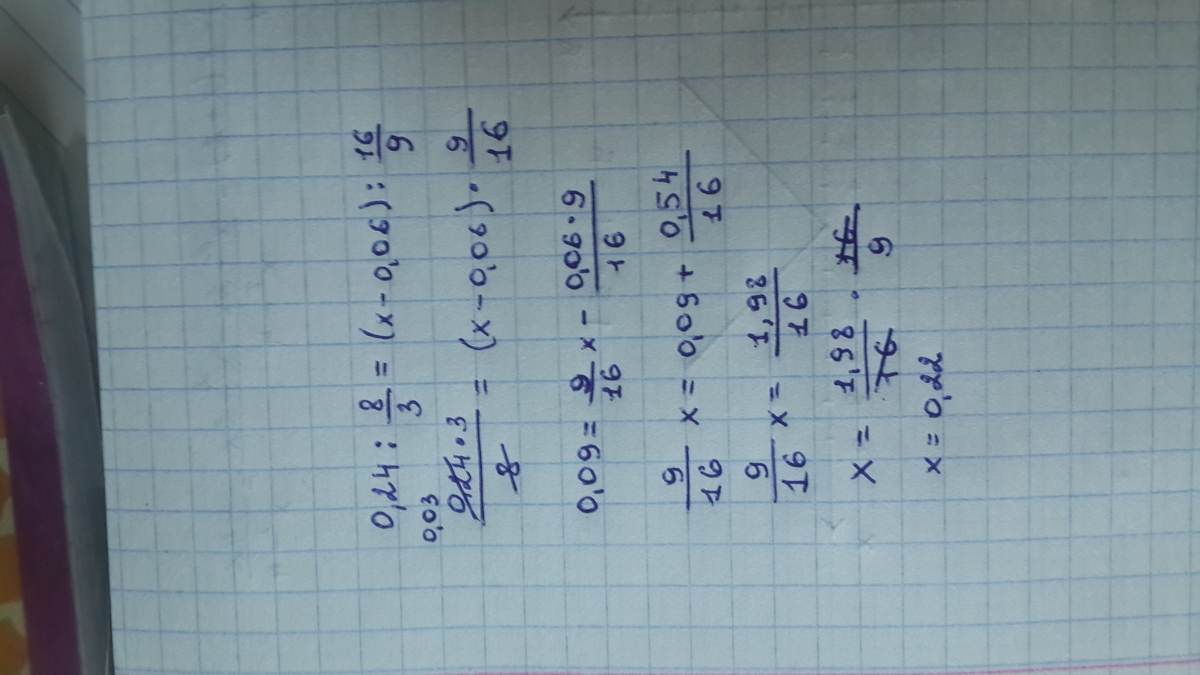 0,24 : 8/3 = (x - 0,06) : 16/9
0,03
0,24 · 3/8 = (x - 0,06) · 9/16
0,09 = 9/16 x - 0,06 · 9/16
9/16 x = 0,09 + 0,54/16
9/16 x = 1,98/16
x = 1,98/16 · 16/9
x = 0,22